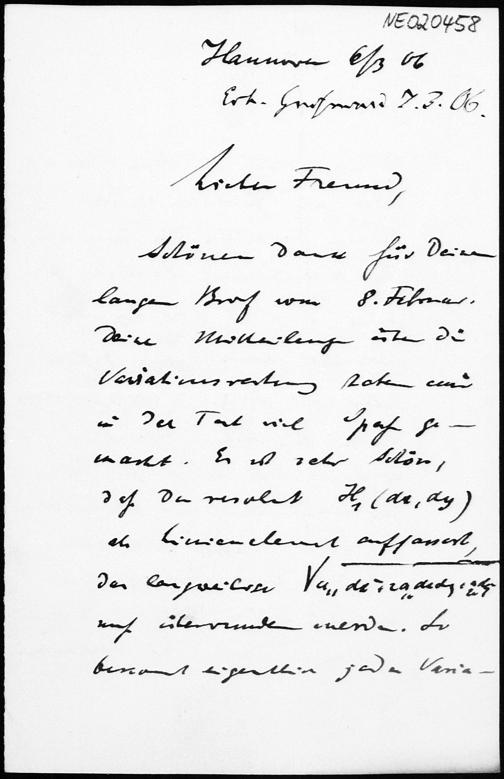 NE020458
Hannover 6/3 06
Erh. Greifswald 7.3.06.
Lieber Freund,
Schönen Dank für Deinen
langen Brief vom 8. Februar.
Deine Mitteilungen über die
Variationsrechnung haben mir
in der Tat viel Spaß ge-
macht. Es ist sehr schön,
daß Du resolut H₁(dx, dy)
als Linienelement auffassest,
das langweilige
muß überwunden werden. So
bekommt eigentlich jedes Varia-